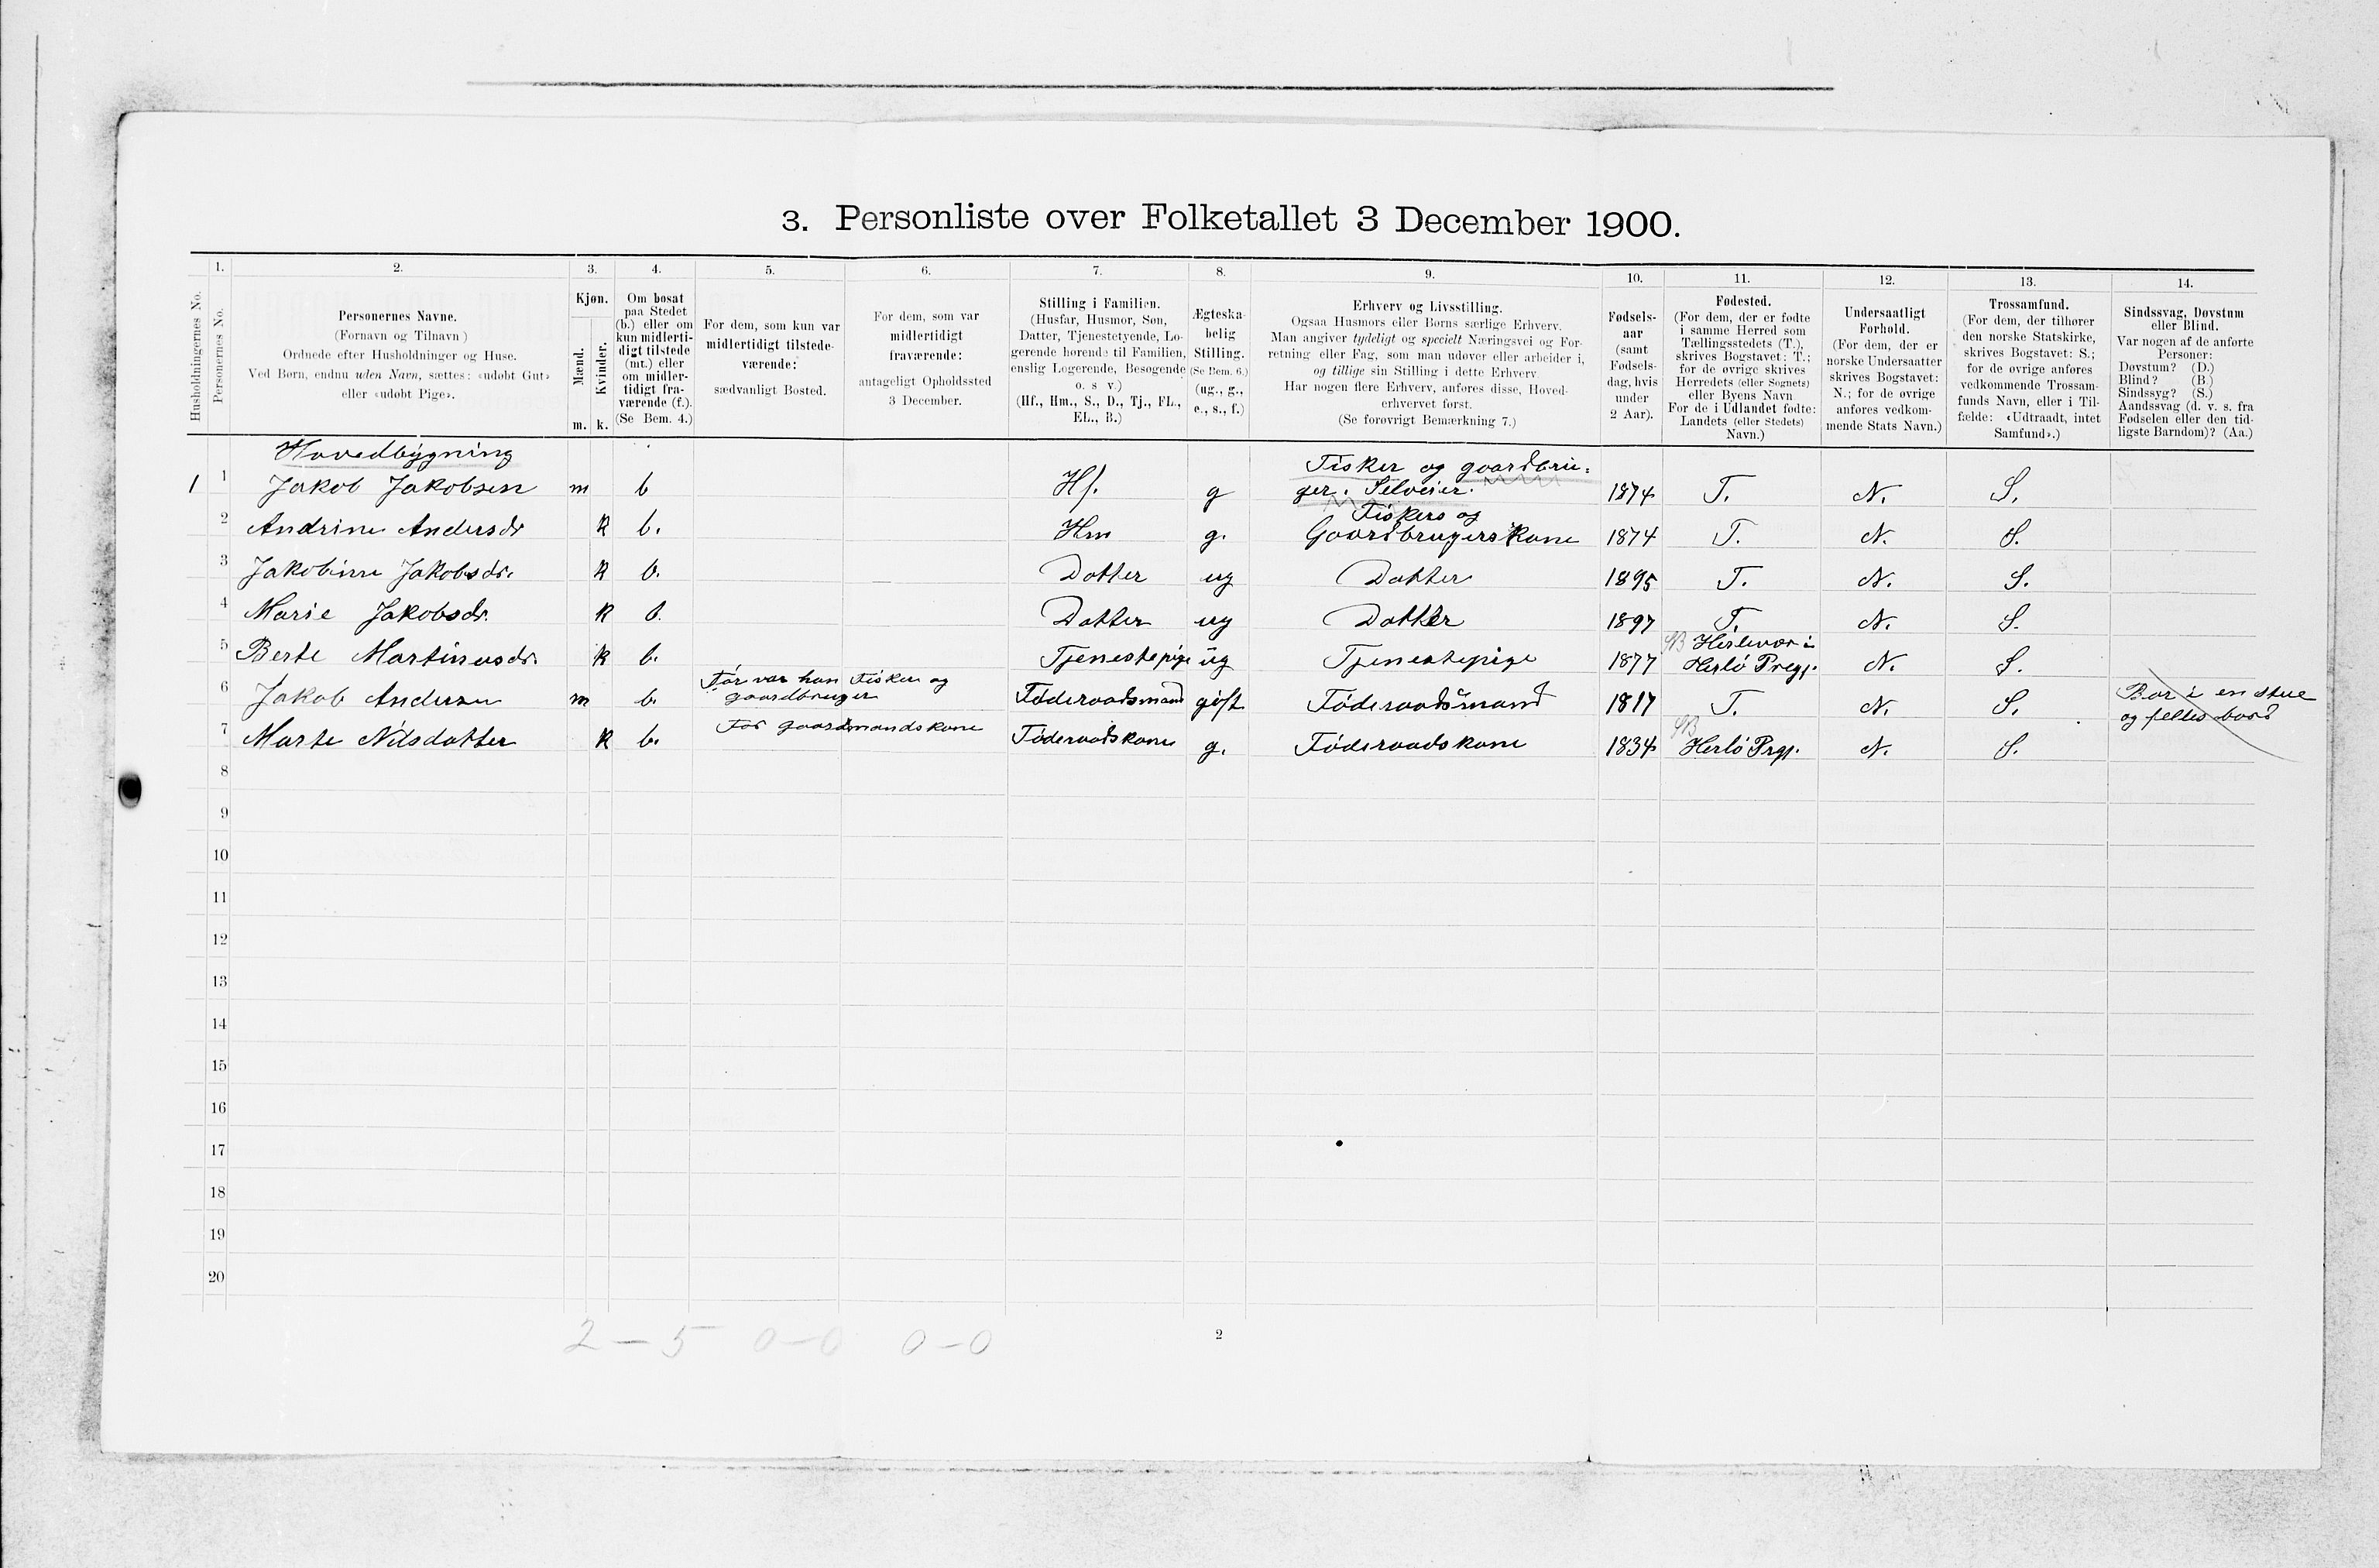 3. Personliste over Folketallet 3 December 1900.
1. 2. 3. 4. 5. 6. 7. 8. 9. 10. 11. 12. 13. 14.
Husholdningernes No.
Personernes No.
Personernes Navne.
(Fornavn og Tilnavn)
Ordnede efter Husholdninger og Huse.
Ved Børn, endnu uden Navn, sættes: «udøbt Gut»
eller «udøbt Pige».
Kjøn.
Mænd.
Kvinder.
m. k.
Om bosat
paa Stedet
(b.) eller om
kun midlerti-
digt tilstede
(mt.) eller
om midler-
tidigt fra-
værende (f.).
(Se Bem. 4.)
For dem, som kun var
midlertidigt tilstede-
værende:
sædvanligt Bosted.
For dem, som var
midlertidigt
fraværende:
antageligt Opholdssted
3 December.
Stilling i Familien.
(Husfar, Husmor, Søn,
Datter, Tjenestetyende, Lo-
gerende hørende til Familien,
enslig Logerende, Besøgende
o. s v.)
(Hf., Hm., S., D., Tj., FL.,
EL., B.)
Ægteska-
belig
Stilling.
(Se Bem. 6.)
(ug., g.,
e., s., f.)
Erhverv og Livsstilling.
Ogsaa Husmors eller Børns særlige Erhverv.
Man angiver tydeligt og specielt Næringsvei og For-
retning eller Fag, som man udøver eller arbeider i,
og tillige sin Stilling i dette Erhverv
Har nogen flere Erhverv, anføres disse, Hoved-
erhvervet først.
(Se forøvrigt Bemærkning 7.)
Fødsels-
aar
(samt
Fødsels-
dag, hvis
under
2 Aar).
Fødested.
(For dem, der er fødte
i samme Herred som
Tællingsstedets (T.),
skrives Bogstavet: T.;
for de øvrige skrives
Herredets (eller Sognets)
eller Byens Navn
For de i Udlandet fødte:
Landets (eller Stedets)
Navn.)
Undersaatligt
Forhold.
(For dem, der er
norske Undersaatter
skrives Bogstavet:
N.; for de øvrige
anføres vedkom-
mende Stats Navn.)
Trossamfund.
(For dem, der tilhører
den norske Statskirke,
skrives Bogstavet: S.;
for de øvrige anføres
vedkommende Trossam-
funds Navn, eller i Til-
fælde: «Udtraadt, intet
Samfund».)
Sindssvag, Døvstum
eller Blind.
Var nogen af de anførte
Personer:
Døvstum? (D.)
Blind? (B.)
Sindssyg? (S.)
Aandssvag (d. v. s. fra
Fødselen eller den tid-
ligste Barndom)? (Aa.)
Hovedbygning
1 1 Jakob Jakobsen m b Hf. g Fisker og gaardbru-
ger. Selveier. 1874 T. N. S.
2 Andrine Andersdr k b. Hm g. Fiskers og
Gaardbrugerskone 1874 T. N. S.
3 Jakobine Jakobsdr. k b. Datter ug Datter 1895 T. N. S.
4 Marie Jakobsdr. k b. Datter ug Datter 1897 T. N. S.
5 Berte Martinusdr. k b. Tjenestepige ug Tjenestepige 1877 Herlevær i
Herlö Pregj. N. S.
6 Jakob Andersen m b. Før var han Fisker og
gaardbruger Föderaadsmand gift Föderaadsmand 1817 T. N. S. Bor i en stue
og felles bord
7 Marte Nilsdatter k b. Før gaardmandskone Föderaadskone g. Föderaadskone 1834 Herlö Prgj. N. S.
8
9
10
11
12
13
14
15
16
17
18
19
20
2 – 5 0 – 0 0 – 0
2